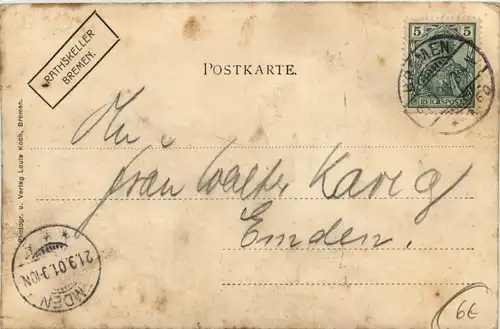 RATHSKELLER
BREMEN.
POSTKARTE.
5 5
REICHSPOST
BREMEN
Photogr. u. Verlag Louis Koch, Bremen.
Frau Walter
Emden.
21.3.01.3-10N.
EMDEN
6€